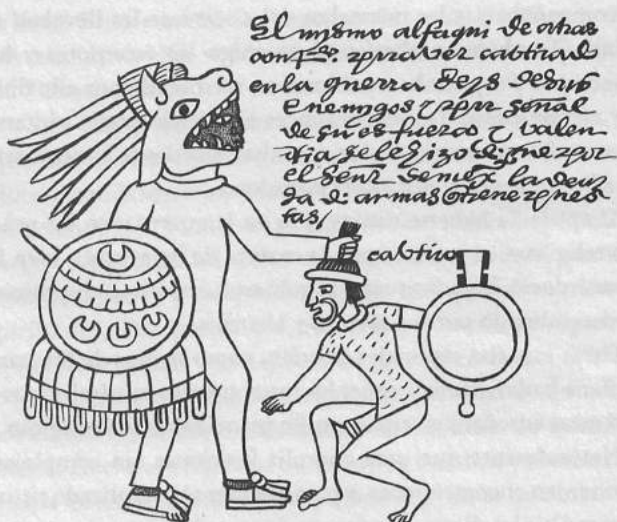 El mysmo alfaqui de atras
por aver cabtivado
en la guerra de sus
enemygos y por senal
de su esfuerço y valen
tia se le hizo por
el senr de mexco la devi
sa d armas q tiene pues
tas/
cabtivo